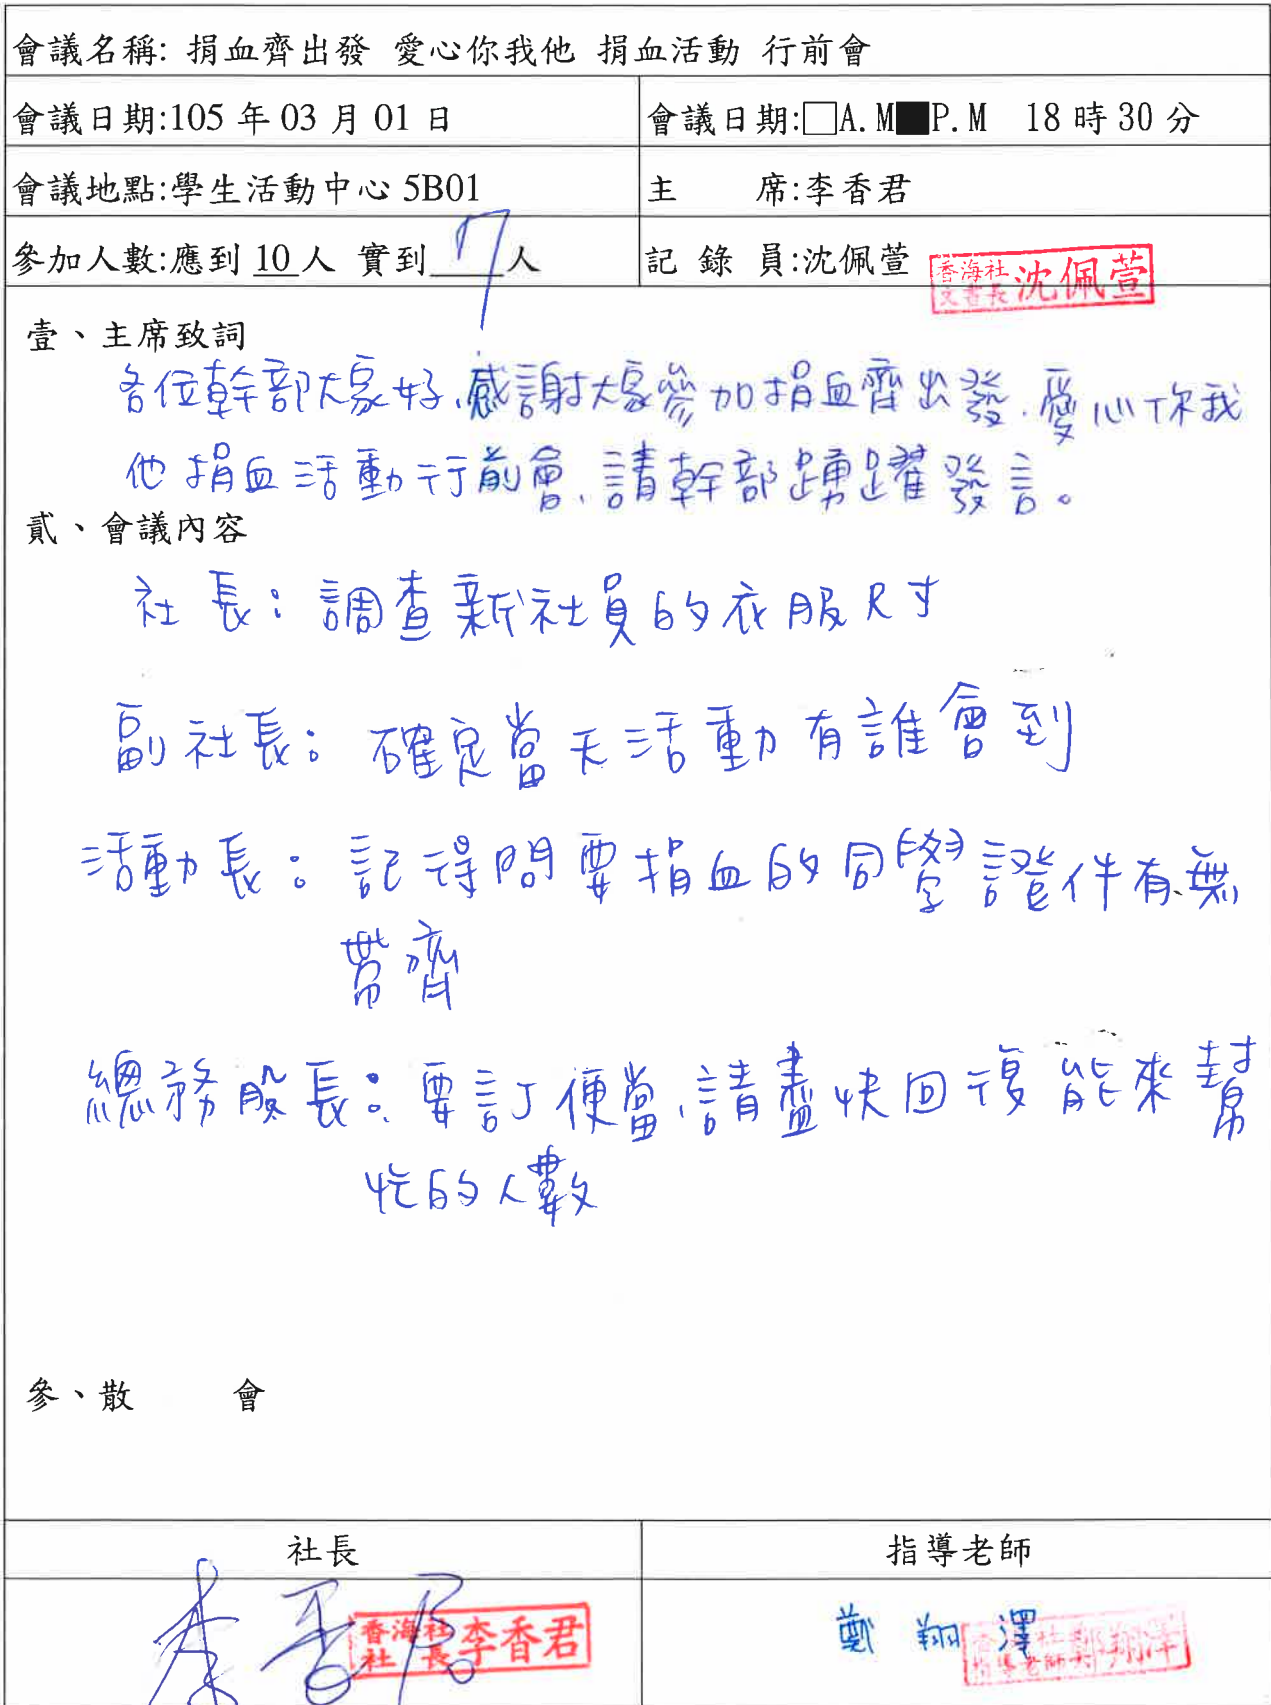 會議名稱: 捐血齊出發 愛心你我他 捐血活動 行前會
會議日期:105 年 03 月 01 日
會議日期:□A.M■P.M 18 時 30 分
會議地點:學生活動中心 5B01
主 席:李香君
參加人數:應到 10 人 實到 7 人
記 錄 員:沈佩萱
香海社
文書長 沈佩萱
壹、主席致詞
各位幹部大家好,感謝大家參加捐血齊出發,愛心你我
他捐血活動行前會,請幹部踴躍發言。
貳、會議內容
社長:調查新社員的衣服尺寸
副社長:確定當天活動有誰會到
活動長:記得問要捐血的同學證件有無
帶齊
總務股長:要訂便當,請盡快回復能來幫
忙的人數
參、散 會
社長
指導老師
李香君
香海社
社 長 李香君
鄭翔澤
香海社
指導老師 鄭翔澤